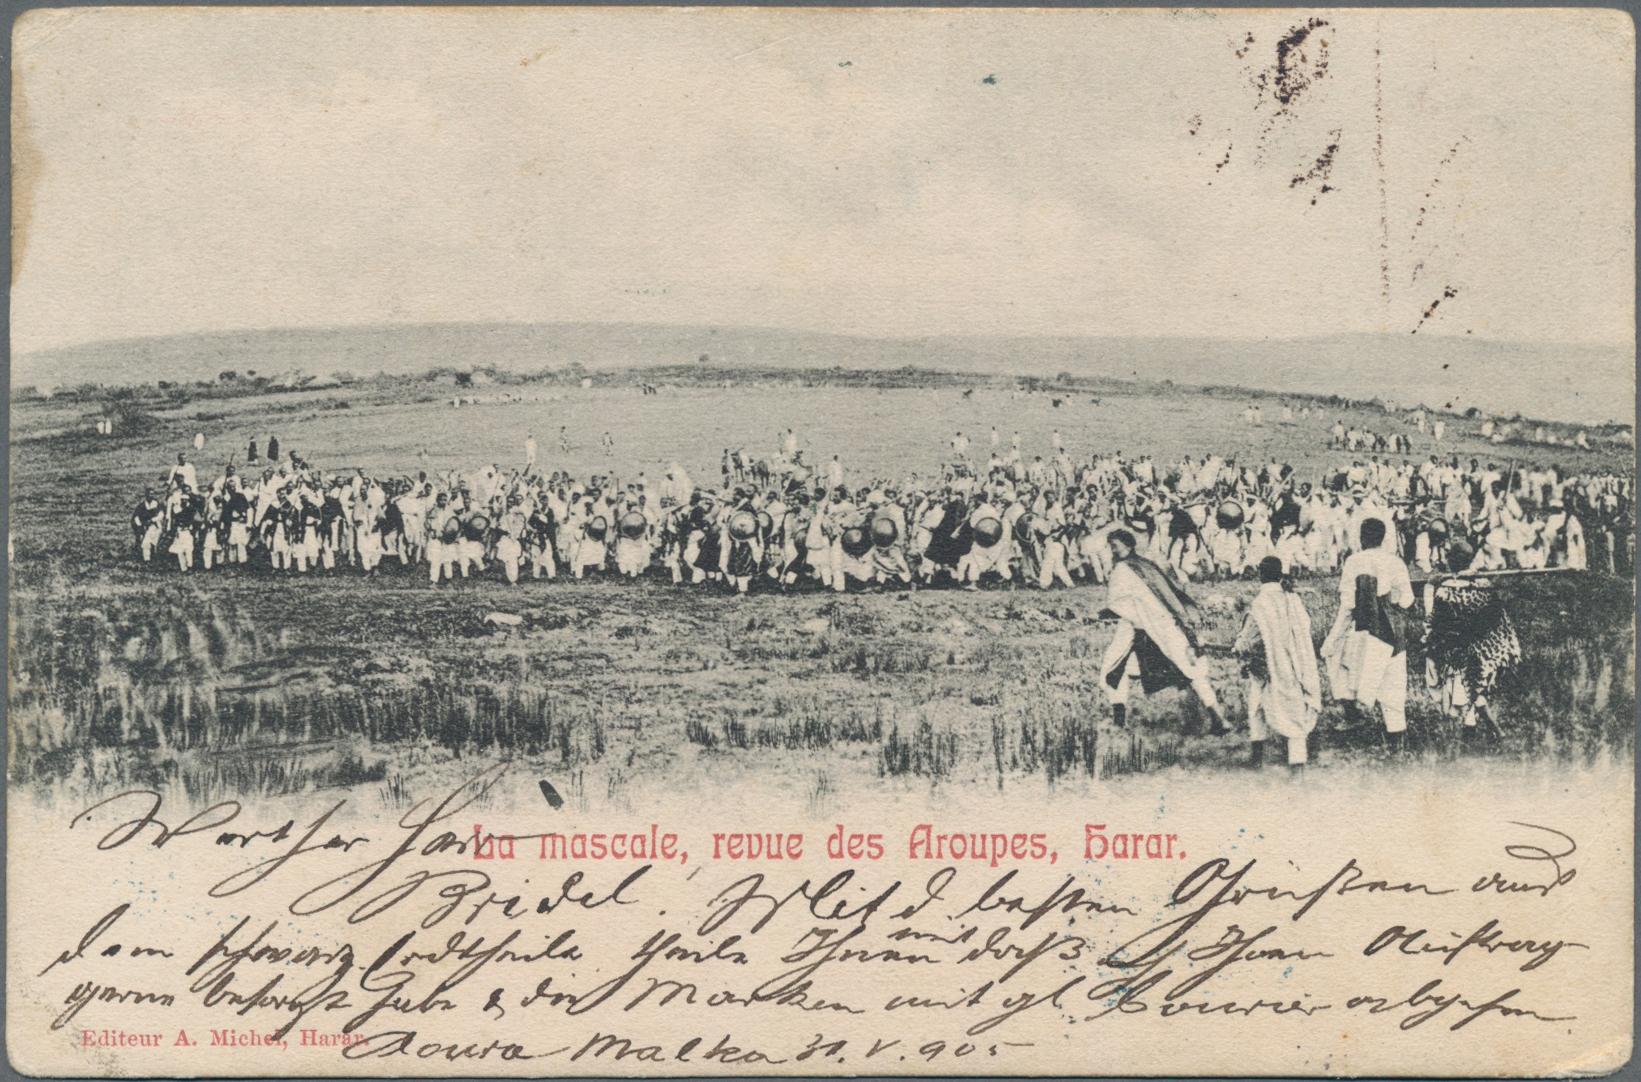 Werther Herr
La mascale, revue des Aroupes, Harar.
Bridel. Mit d. besten Grüßen aus
dem schwarz. Erdtheile theile Ihnen mit daß ich Ihren Auftrag
gerne besorgt habe & die Marken mit gl. Courier abgehen.
Editeur A. Michel, Harar.
Malka 31. V. 905